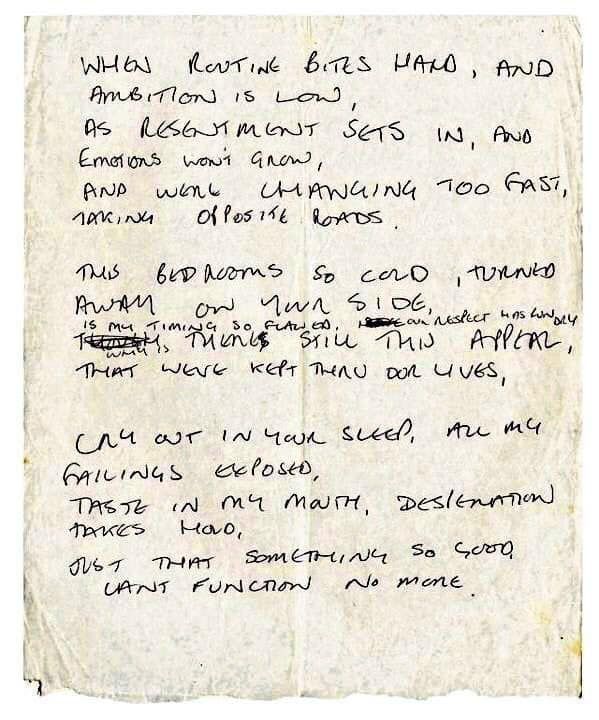 WHEN ROUTINE BITES HARD, AND
AMBITION IS LOW,
AS RESENTMENT SETS IN, AND
EMOTIONS WON'T GROW,
AND WERE CHANGING TOO FAST,
TAKING OPPOSITE ROADS.
THIS BEDROOMS SO COLD, TURNED
AWAY ON YOUR SIDE,
IS MY TIMING SO FLAWED, OUR RESPECT HAS RUN DRY
WHY IS THERES STILL THIS APPEAL,
THAT WEVE KEPT THRU OUR LIVES,
CRY OUT IN YOUR SLEEP, ALL MY
FAILINGS EXPOSED,
TASTE IN MY MOUTH, DESPERATION
TAKES HOLD,
JUST THAT SOMETHING SO GOOD
CANT FUNCTION NO MORE.